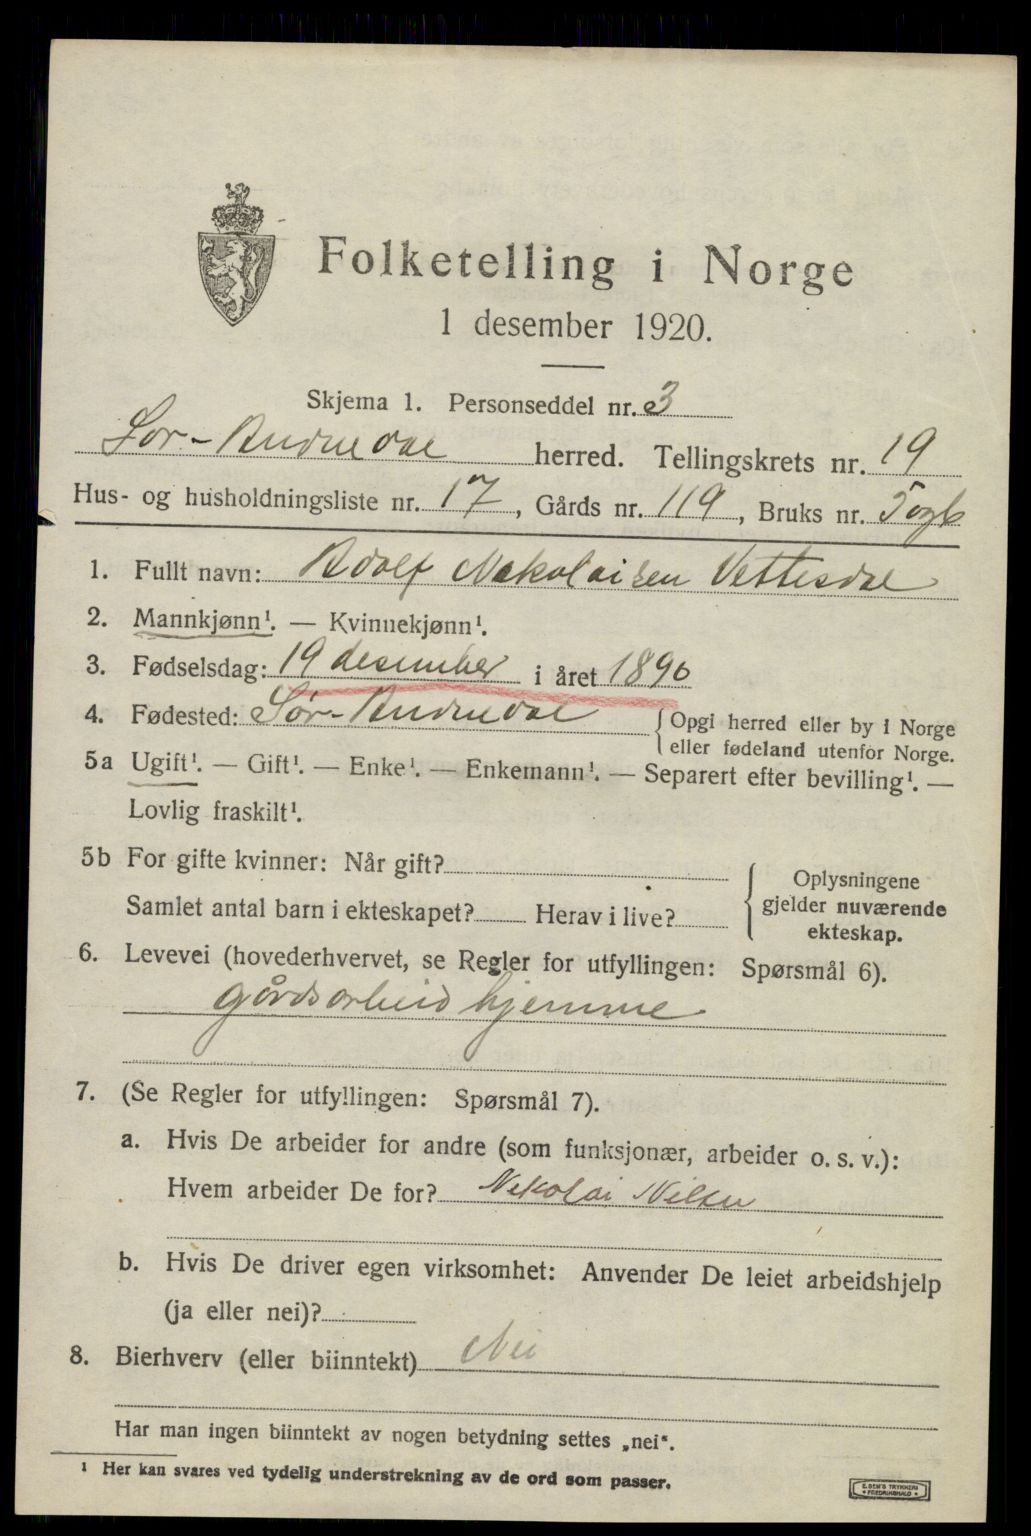 Folketelling i Norge
1 desember 1920.
Skjema 1. Personseddel nr. 3
Sør-Audnedal herred. Tellingskrets nr. 19
Hus- og husholdningsliste nr. 17, Gårds nr. 119, Bruks nr. 5 og 6
1. Fullt navn: Adolf Nekolaisen Vettesdal
2. Mannkjønn¹. — Kvinnekjønn¹.
3. Fødselsdag: 19 desember i året 1890
4. Fødested: Sør-Audnedal { Opgi herred eller by i Norge
eller fødeland utenfor Norge.
5a Ugift¹. — Gift¹. — Enke¹. — Enkemann¹. — Separert efter bevilling¹. —
Lovlig fraskilt¹.
5b For gifte kvinner: Når gift?
Samlet antal barn i ekteskapet? Herav i live?
{ Oplysningene
gjelder nuværende
ekteskap.
6. Levevei (hovederhvervet, se Regler for utfyllingen: Spørsmål 6).
gårdsarbeid hjemme
7. (Se Regler for utfyllingen: Spørsmål 7).
a. Hvis De arbeider for andre (som funksjonær, arbeider o. s. v.):
Hvem arbeider De for? Nekolai Nilsen
b. Hvis De driver egen virksomhet: Anvender De leiet arbeidshjelp
(ja eller nei)?
8. Bierhverv (eller biinntekt) Nei
Har man ingen biinntekt av nogen betydning settes „nei“.
¹ Her kan svares ved tydelig understrekning av de ord som passer.
E. SEM'S TRYKKERI
FREDRIKSHALD